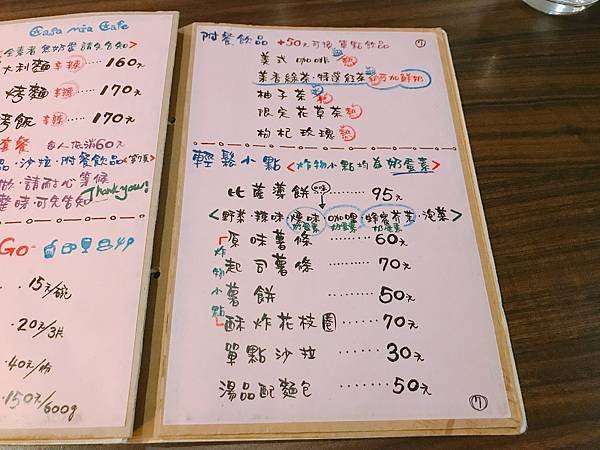 Casa mia Cafe
160元
烤麵 辛辣 170元
烤飯 辛辣 170元
套餐 每人依減60元
品·沙拉·附餐飲品
請耐心等候
Thank you!
Go
15元/碗
20元/3片
40元/份
150元/600g
附餐飲品 +50元可換單點飲品
美式咖啡 熱
茉香綠茶·特選紅茶 可加鮮奶
柚子茶 熱
限定花草茶 熱
枸杞玫瑰 熱
輕鬆小點 <炸物小點均為奶蛋素>
比薩薄餅 口味 95元
<野菜·辣味·燻味·咖哩·蜂蜜芥茉·泡菜>
奶蛋素 奶蛋素 奶蛋素
炸物小點
原味薯條 60元
起司薯條 70元
薯餅 50元
酥炸花枝圈 70元
單點沙拉 30元
湯品配麵包 50元
7